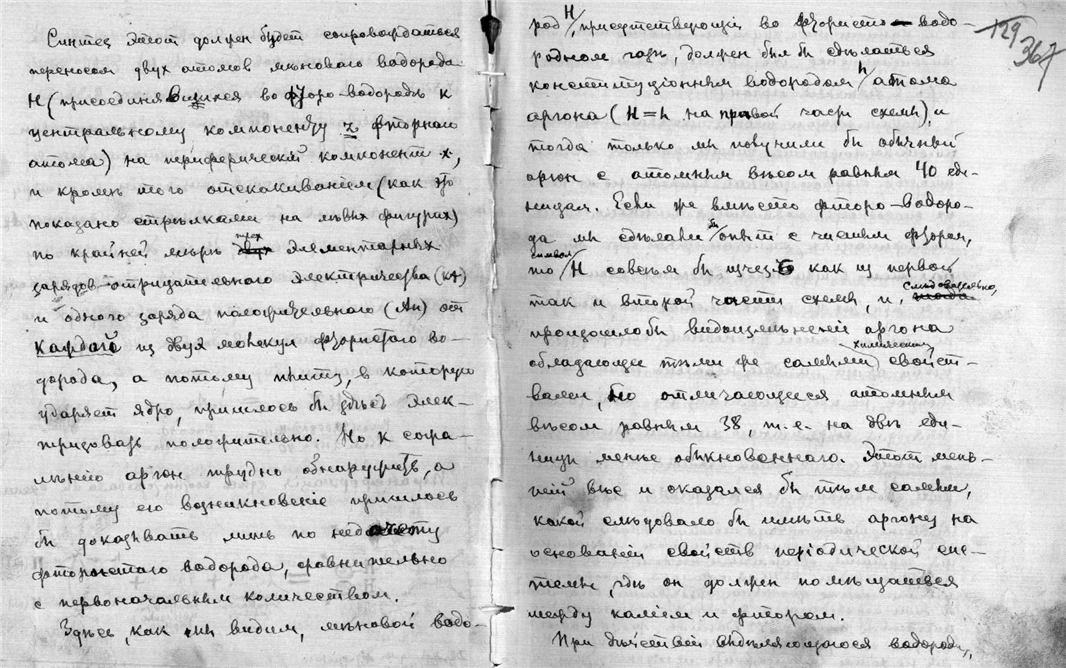 Синтез этот должен будет сопровождаться
переносом двух атомов мѣноваго водорода
Н (присоединявшихся во фторо-водородѣ к
центральному компоненту z фторнаго
атома) на периферическій компонент x,
и кромѣ того отскакиваніем (как это
показано стрѣлками на лѣвых фигурах)
по крайней мѣрѣ трех элементарных
зарядов отрицательнаго электричества (кд)
и одного заряда положительнаго (Ян) от
каждой из двух молекул фтористаго во-
дорода, а потому плиту, в которую
ударяет ядро, пришлось бы здѣсь элек-
тризовать положительно. Но к сожа-
лѣнію аргон трудно обнаружить, а
потому его возникновеніе пришлось
бы доказывать лишь по недочету
фтористаго водорода, сравнительно
с первоначальным количеством.
Здѣсь, как мы видим, мѣновой водо-
129
367
род Н, присутствующій во фтористо-водо-
родном газѣ, должен был бы сдѣлаться
конституціонным водородом h атома
аргона (Н=h на правой части схемы), и
тогда только мы получили бы обычный
аргон с атомным вѣсом равным 40 еди-
ницам. Если же вмѣсто фторо-водоро-
да мы сдѣлали бы опыт с чистым фтором,
то символ Н совсѣм бы изчез как из первой
так и второй части схемы, и, слѣдовательно,
произошло бы видоизмѣненіе аргона
обладающее тѣми же самыми химическими свойст-
вами, но отличающееся атомным
вѣсом равным 38, т.-е. на двѣ еди-
ницы менѣе обыкновеннаго. Этот мень-
шій вѣс и оказался бы тѣм самым,
какой слѣдовало бы имѣть аргону на
основаніи свойств періодической сис-
темы, гдѣ он должен помѣщаться
между каліем и фтором.
При дѣйствіи выдѣляющагося водорода,